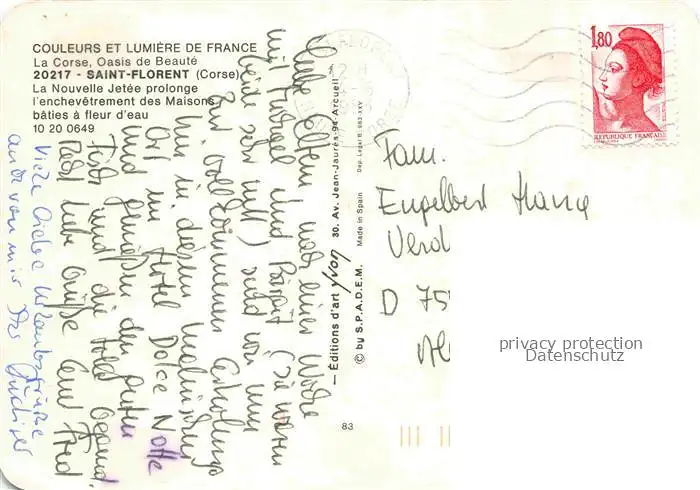 COULEURS ET LUMIÈRE DE FRANCE
La Corse, Oasis de Beauté
20217 - SAINT-FLORENT (Corse)
La Nouvelle Jetée prolonge
l'enchevêtrement des Maisons
bâties à fleur d'eau
10 20 0649
Liebe Eltern, nach einer Woche
mit und (da waren
wir sind wir nun
zur vollkommenen Erholung
hier in diesem malerischen
Ort im Hotel Dolce Notte
und genießen den guten
Fisch und die tolle Gegend.
Recht liebe Grüße Eure
Viele liebe Urlaubsgrüße
auch von mir
— Éditions d'art yvon 30, Av. Jean-Jaurès-94-Arcueil —
© by S.P.A.D.E.M. Made in Spain Dep. Legal B. 983-XXV
83
1,80
REPUBLIQUE FRANÇAISE
Fam.
Engelbert
D 75
privacy protection
Datenschutz